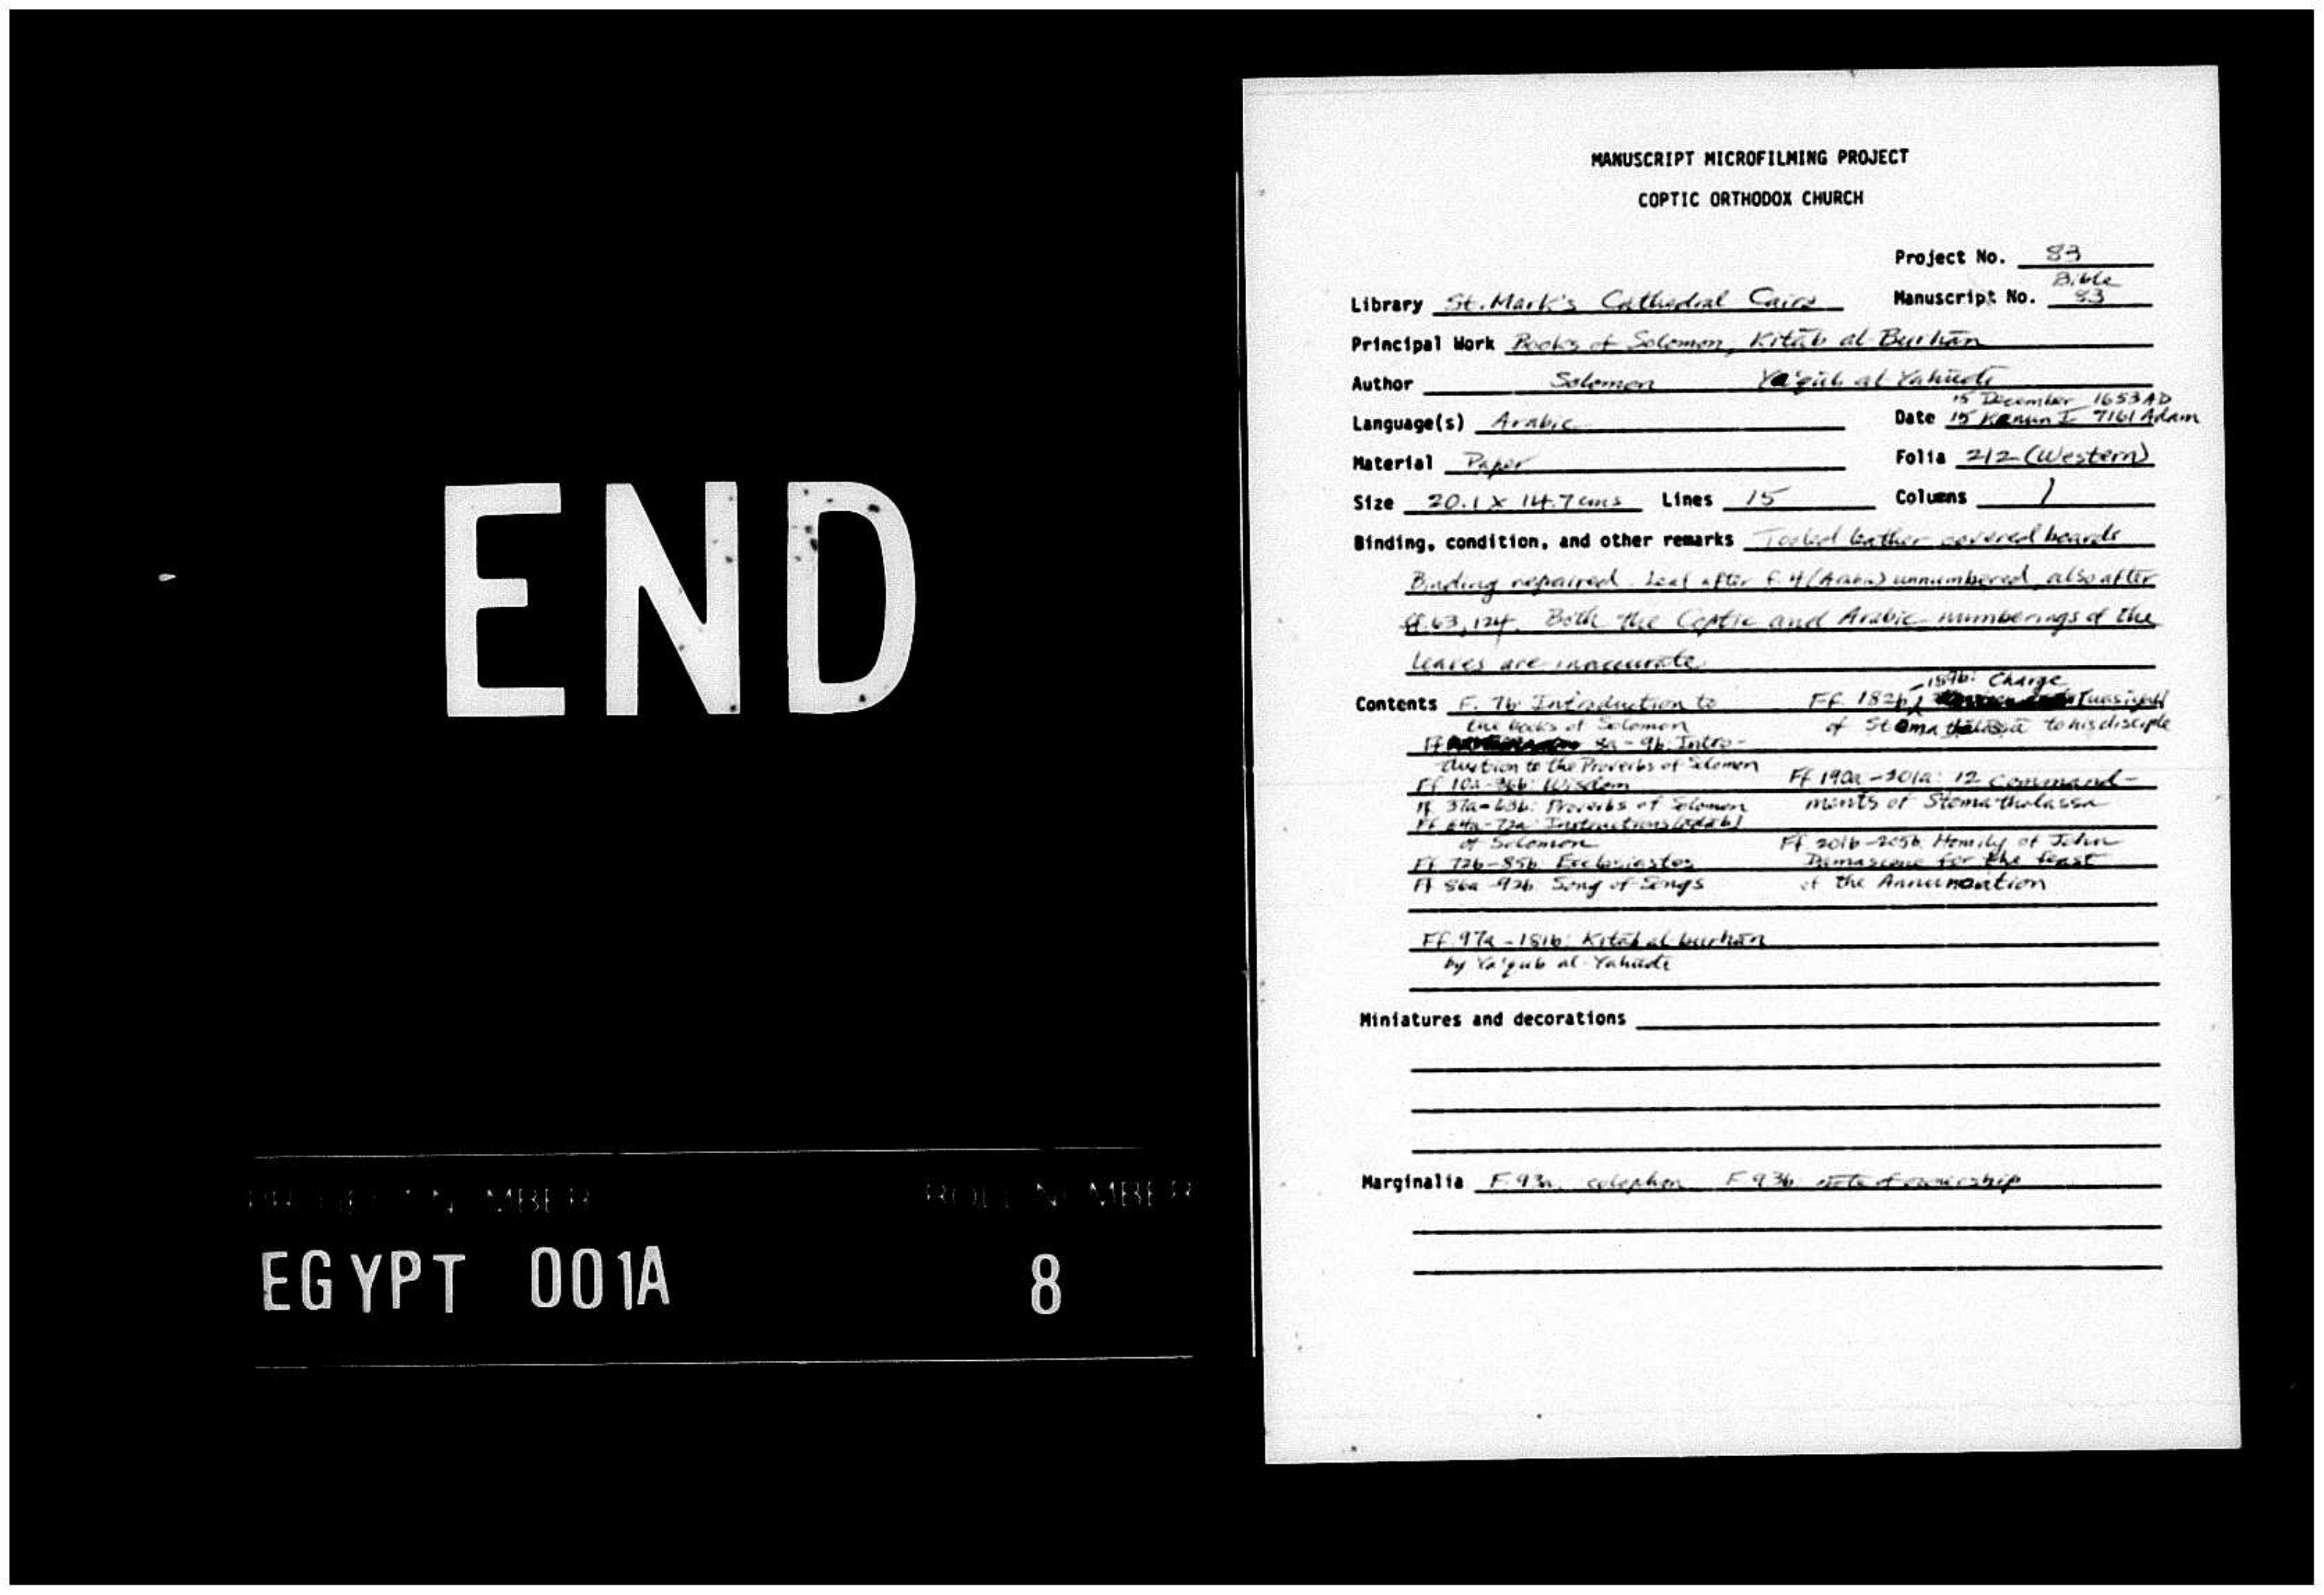 END
PROJECT NUMBER
ROLL NUMBER
EGYPT 001A
8
MANUSCRIPT MICROFILMING PROJECT
COPTIC ORTHODOX CHURCH
Project No. 83
Library St. Mark's Cathedral Cairo
Manuscript No. Bible 83
Principal Work Books of Solomon, Kitāb al-Burhān
Author Solomon Ya'qūb al Yahūdī
Language(s) Arabic
Date 15 December 1653 AD
15 Kanun I 7161 Adam
Material Paper
Folia 212 (Western)
Size 20.1 x 14.7 cms Lines 15 Columns 1
Binding, condition, and other remarks Tooled leather covered boards
Binding repaired. Leaf after f. 4 (Arabic) unnumbered, also after
ff. 63, 124. Both the Coptic and Arabic numberings of the
leaves are inaccurate.
Contents F. 7b Introduction to
the books of Solomon
Ff 8a-9b: Intro-
duction to the Proverbs of Solomon
Ff 10a-36b: Wisdom
Ff 37a-63b: Proverbs of Solomon
Ff 64a-72a: Instructions (adab)
of Solomon
Ff 72b-85b: Ecclesiastes
Ff 86a-92b: Song of Songs
Ff. 97a-181b: Kitāb al burhān
by Ya'qub al-Yahūdī
Ff. 182b-189b: Charge
of Stomathalassa to his disciple
Ff 190a-201a: 12 command-
ments of Stomathalassa
Ff 201b-205b Homily of John
Damascene for the feast
of the Annunciation
Miniatures and decorations
Marginalia F. 93a: colophon F. 93b note of ownership